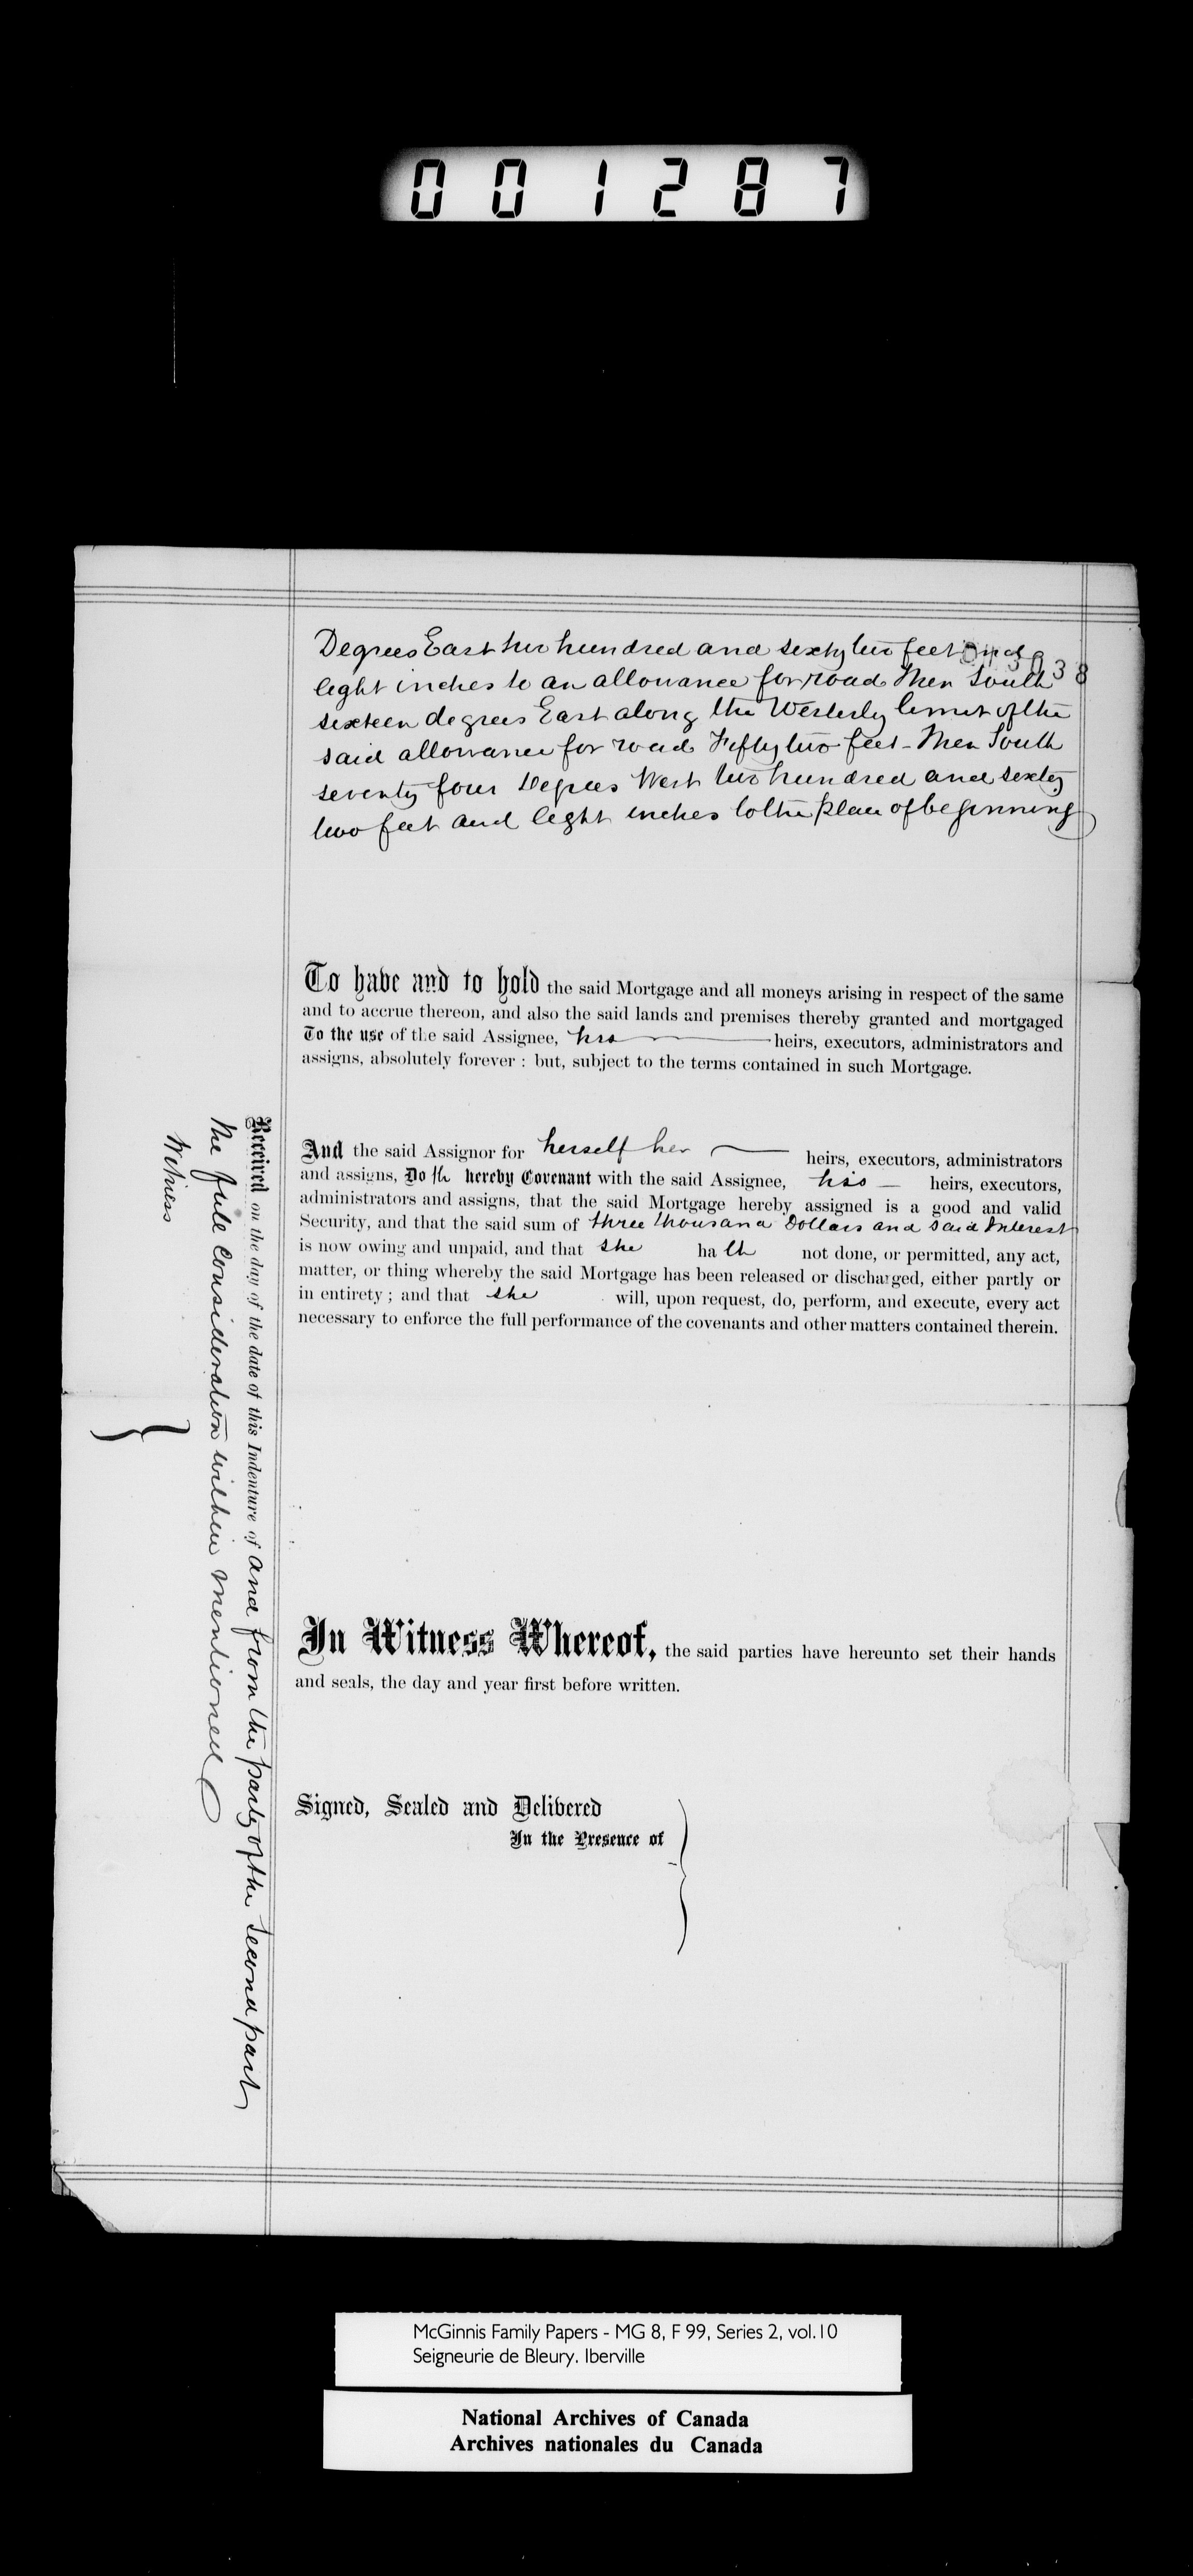 001287
Degrees East two hundred and sixty two feet and
eight inches to an allowance for road Then South
sixteen degrees East along the Westerly limit of the
said allowance for road Fifty two feet - Then South
seventy four Degrees West two hundred and sixty
two feet and eight inches to the place of beginning
To have and to hold the said Mortgage and all moneys arising in respect of the same
and to accrue thereon, and also the said lands and premises thereby granted and mortgaged
To the use of the said Assignee, his heirs, executors, administrators and
assigns, absolutely forever : but, subject to the terms contained in such Mortgage.
And the said Assignor for herself her heirs, executors, administrators
and assigns, Do th hereby Covenant with the said Assignee, his — heirs, executors,
administrators and assigns, that the said Mortgage hereby assigned is a good and valid
Security, and that the said sum of three thousand Dollars and said Interest
is now owing and unpaid, and that she ha th not done, or permitted, any act,
matter, or thing whereby the said Mortgage has been released or discharged, either partly or
in entirety ; and that she will, upon request, do, perform, and execute, every act
necessary to enforce the full performance of the covenants and other matters contained therein.
In Witness Whereof, the said parties have hereunto set their hands
and seals, the day and year first before written.
Signed, Sealed and Delivered
In the Presence of
Received on the day of the date of this Indenture of and from the party of the second part
the full consideration within mentioned
Witness
McGinnis Family Papers - MG 8, F 99, Series 2, vol.10
Seigneurie de Bleury. Iberville
National Archives of Canada
Archives nationales du Canada